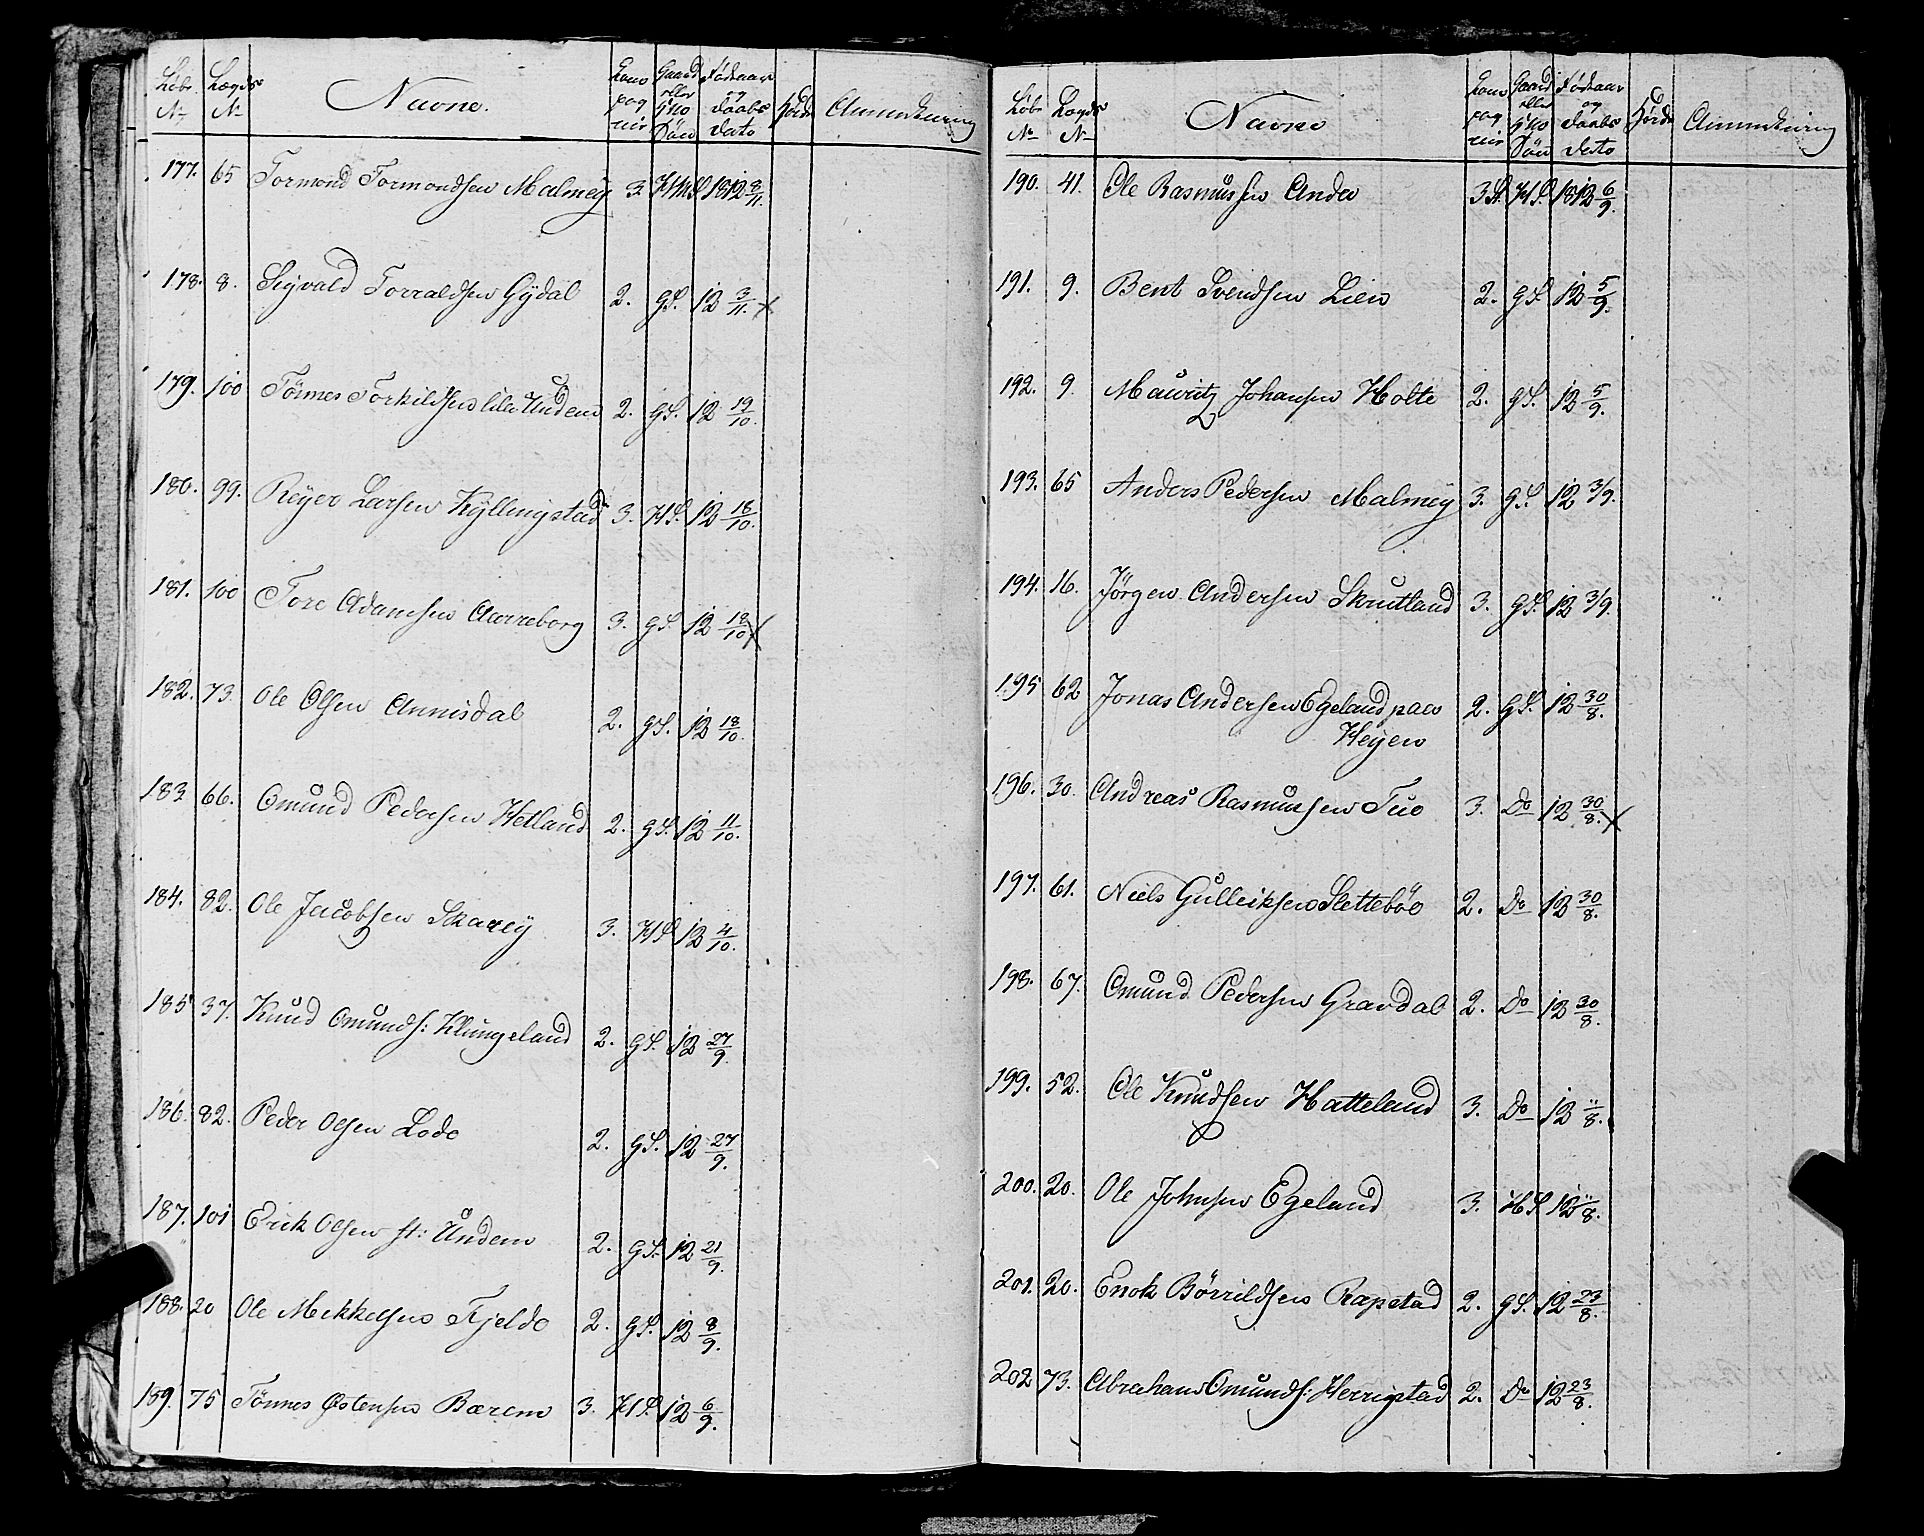 Løbe No Lægds No Navne. Kompagnie Gaard eller Huus Søn Fødeaar og Daabs Dato Høide Anmerkning
177. 65 Tormond Tormondsen Malmey 3 HMS. 1812 8/11.
178. 8. Sigvald Torraldsen Gÿdal 2. GS. 12 3/11. x
179. 100 Tönnes Torkildsen lille Undem 2. GS. 12 19/10.
180. 99. Reÿer Larsen Kÿllingstad 3. HS. 12 18/10.
181. 100 Tore Adamsen Aarreborg 3. GS. 12 18/10. x
182. 73. Ole Olsen Annisdal 2. GS. 12 18/10.
183 66. Omund Pedersen Hetland 2. GS. 12 11/10.
184. 82. Ole Jacobsen Skarey 3. HS. 12 4/10.
185 37. Knud Omunds: Klungeland 2. GS. 12 27/9.
186. 82. Peder Olsen Lodo 2. GS. 12 27/9.
187. 101 Erik Olsen st: Undem 2. GS. 12 21/9.
188. 20 Ole Mikkelsen Fjelde 2. GS. 12 8/9.
189. 75 Tønnes Østensen Bærem 3. HS. 12 6/9.
Løbe No Lægds No Navne Kompagnie Gaard eller Huus Søn Fødeaar og Daabs Dato Høide Anmerkning
190. 41. Ole Rasmussen Anda 3 HS. 1812 6/9.
191. 9. Bent Svendsen Lien 2. GS. 12 5/9.
192. 9. Mauritz Johansen Holte 2. GS. 12 5/9.
193. 65 Anders Pedersen Malmey 3. GS. 12 3/9.
194. 16. Jørgen Andersen Skrutland 3. GS. 12 3/9.
195 62 Jonas Andersen Egeland paa 2. GS. 12 30/8.
Heyen
196. 30. Andreas Rasmussen Tuo 3. Do 12 30/8. x
197. 61. Niels Gulleiksen Slettebøe 2. Do 12 30/8.
198. 67. Omund Pedersen Gravdal 2. Do 12 30/8.
199. 52. Ole Knudsen Hatteland 3. Do 12 "/8.
200. 20. Ole Johnsen Egeland 3. HS 12 "/8.
201. 20. Enok Börrildsen Rapstad 2. GS. 12 23/8.
202 73. Abraham Omunds: Herrigstad 2. Do 12 23/8.